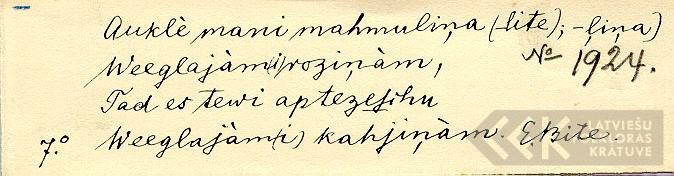 Auklè mani mahmuliņa (-lite); -ļiņa)
Weeglajàm(i) roziņàm,
No 1924.
Tad es tewi aptezeſchu
7.º Weeglajàm(i) kahjiņàm. E. Bite.
LATVIEŠU
FOLKLORAS
KRĀTUVE